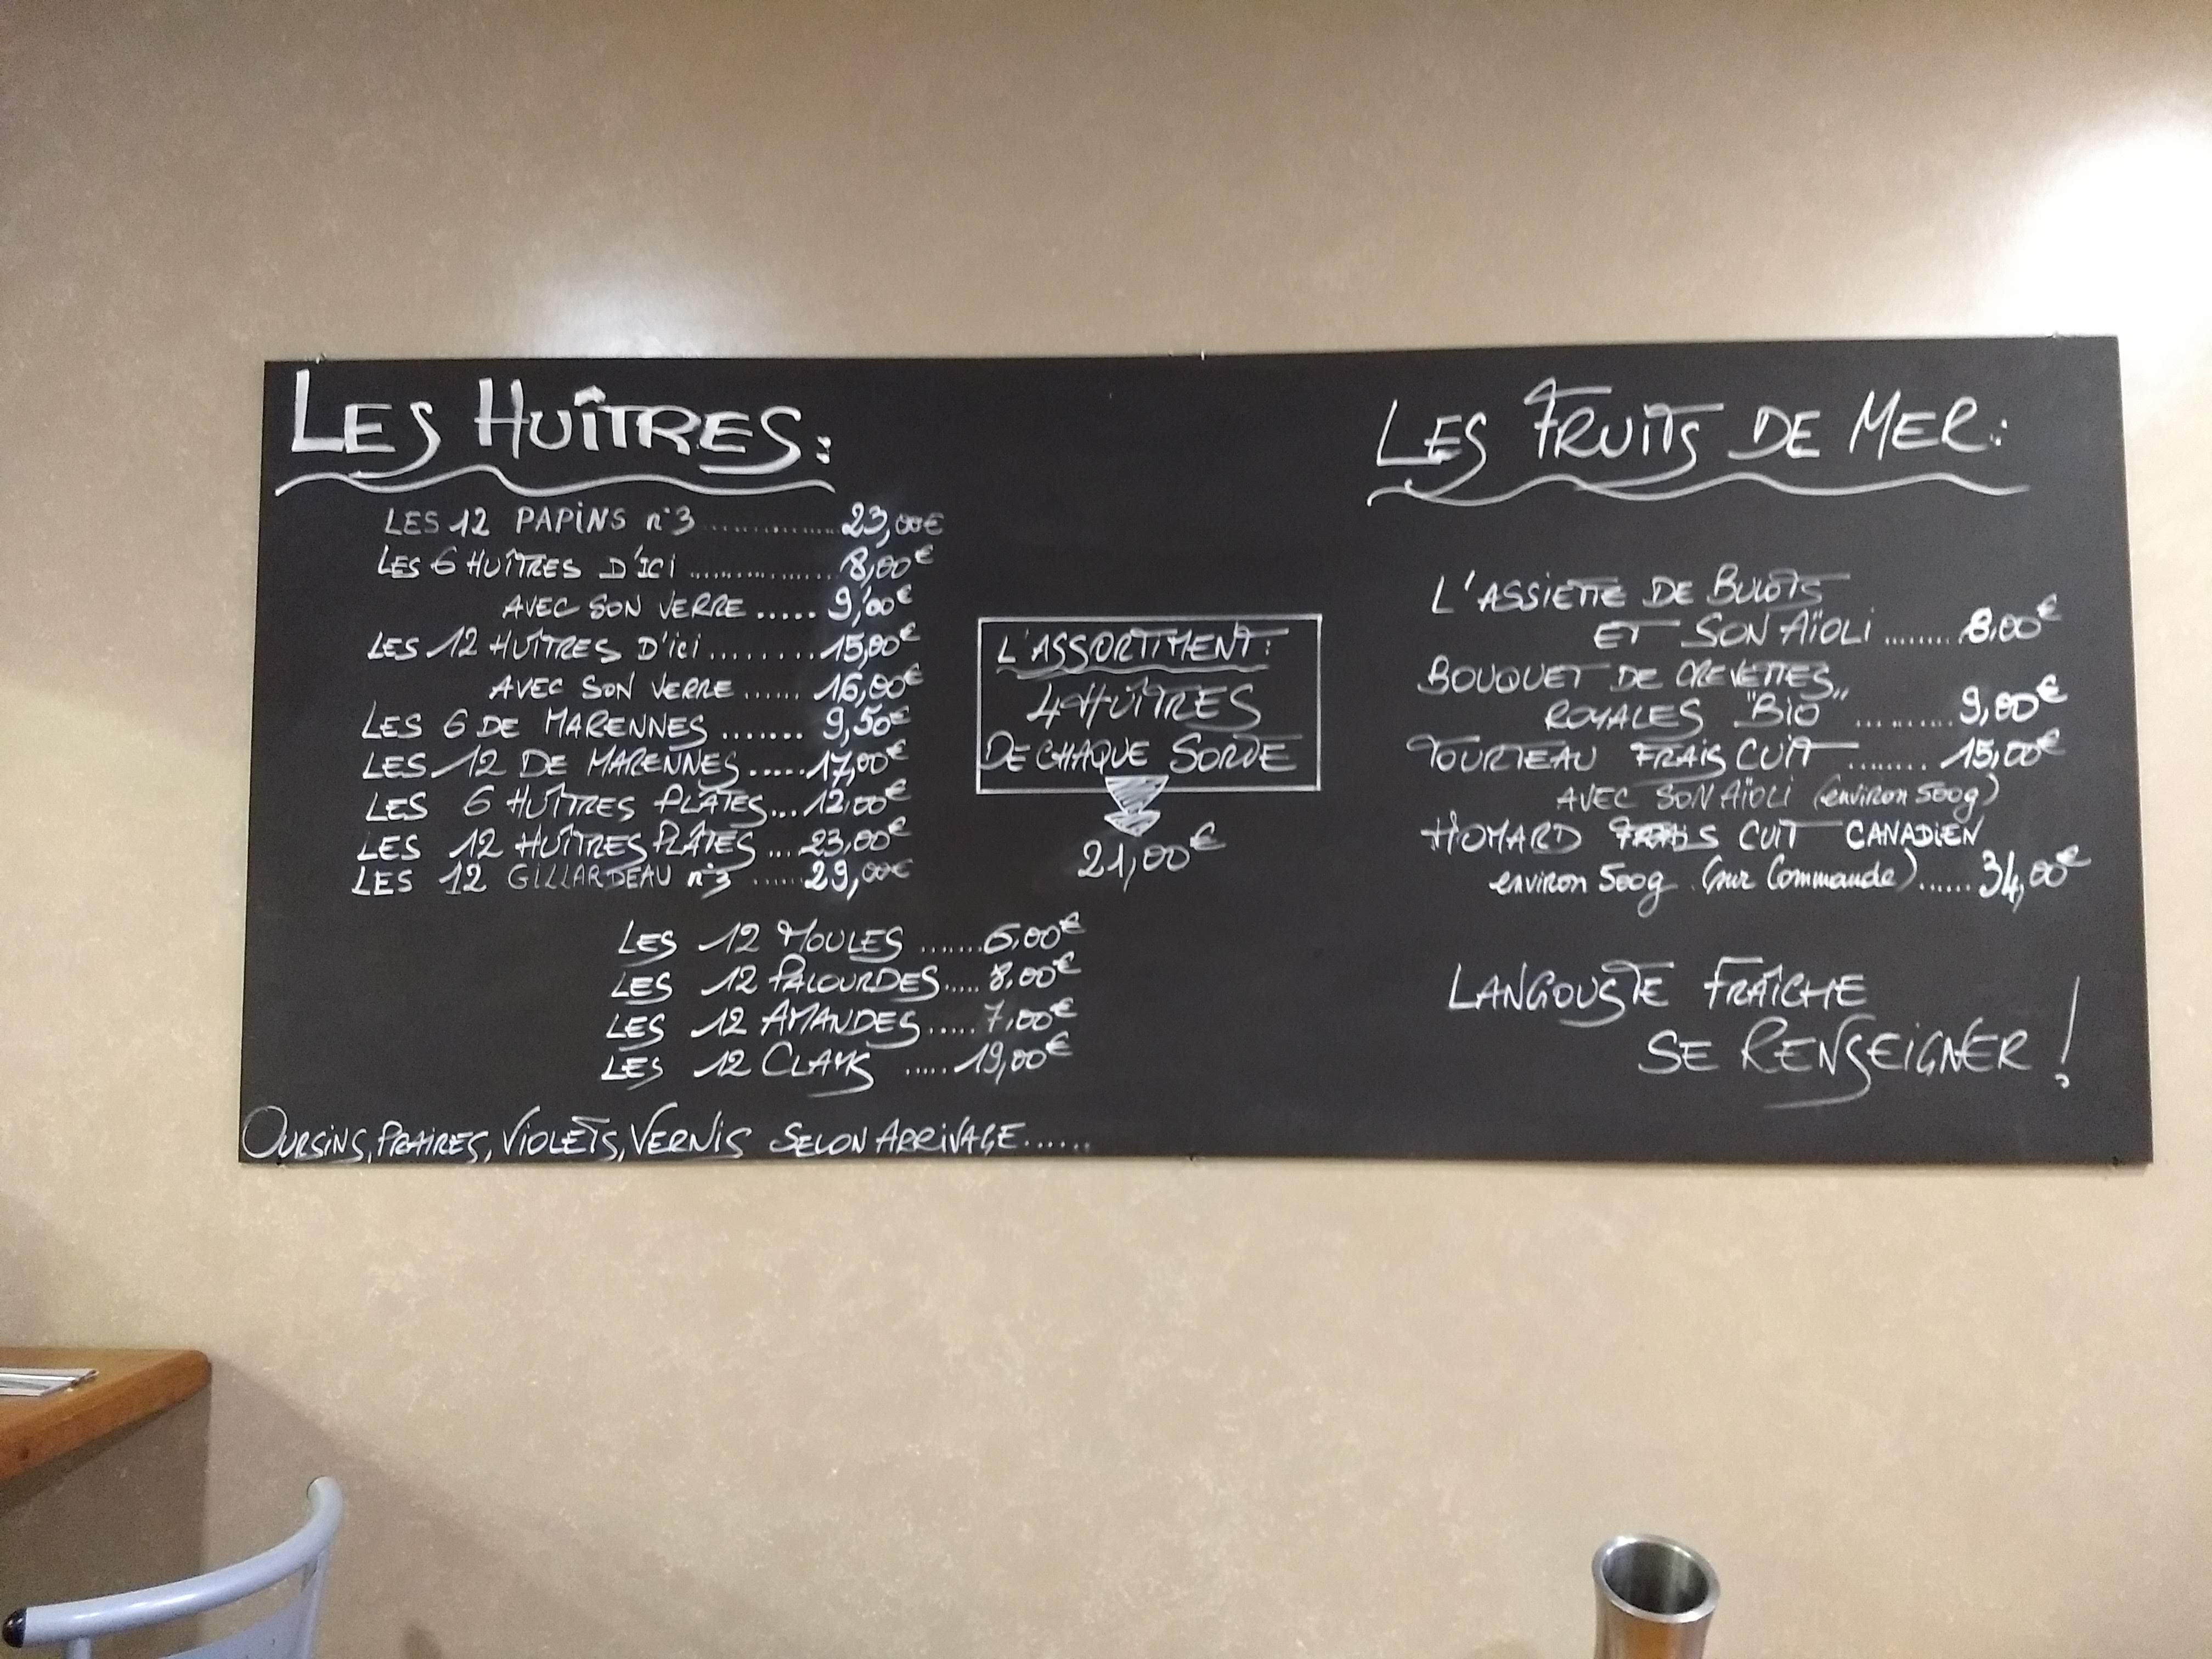 LES HUÎTRES:
LES 12 PAPINS n°3 ............... 23,00€
LES 6 HUÎTRES D'ICI ............... 8,00€
AVEC SON VERRE ..... 9,00€
LES 12 HUÎTRES D'ici ........ 15,00€
AVEC SON VERRE ...... 16,00€
LES 6 DE MARENNES ....... 9,50€
LES 12 DE MARENNES ..... 17,00€
LES 6 HUÎTRES PLATES... 12,00€
LES 12 HUÎTRES PLATES ... 23,00€
LES 12 GILLARDEAU n°3 ..... 29,00€
LES 12 MOULES ....... 6,00€
LES 12 PALOURDES..... 8,00€
LES 12 AMANDES ..... 7,00€
LES 12 CLAMS ..... 19,00€
OURSINS, PRAIRES, VIOLETS, VERNIS SELON ARRIVAGE......
L'ASSORTIMENT:
4 HUÎTRES
DE CHAQUE SORTE
21,00€
LES FRUITS DE MER:
L'ASSIETTE DE BULOTS
ET SON AÏOLI ........ 8,00€
BOUQUET DE CREVETTES
ROYALES "BIO" ......... 9,00€
TOURTEAU FRAIS CUIT ........ 15,00€
AVEC SON AÏOLI (environ 500g)
HOMARD FRAIS CUIT CANADIEN
environ 500g (sur Commande) ...... 34,00€
LANGOUSTE FRAÎCHE
SE RENSEIGNER !